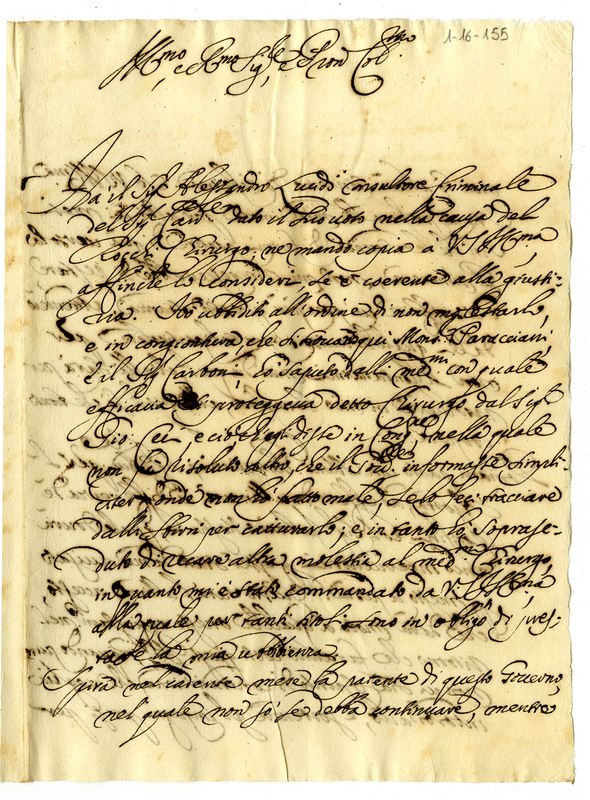 1-16-155
Ill.mo e R.mo Sig.re, e Pron Col.mo
Ha il Sig.r Alessandro Lucidi Consultore Criminale
del Sig.r Card. dato il suo voto nella causa del
Chirurgo, ne mando copia à V.S. Ill.ma
affinche lo consideri, se è coerente alla giusti-
zia. Hò ubbidito all'ordine di non molestarlo,
e in congiontura, che si trovano qui Mons.r Paracciani,
e il Sig.r Carboni, hò saputo dalli med.mi con quale
efficacia si proteggeva detto Chirurgo dal Sig.r
Gio: e ciò ch'egli disse in Cong.ne nella quale
non fù risoluto altro, che il Gov.re informasse simpli-
citer, onde non hò fatto male, se lo feci tracciare
dalli sbirri per catturarlo; e in tanto hò soprase-
duto di recare altra molestia al med.mo Chirurgo,
in quanto mi è stato commandato da V.S. Ill.ma
alla quale per tanti titoli sono in obligo di pres-
tare la mia ubbidienza.
Spira nel cadente mese la patente di questo Governo,
nel quale non sò se debba continuare, mentre